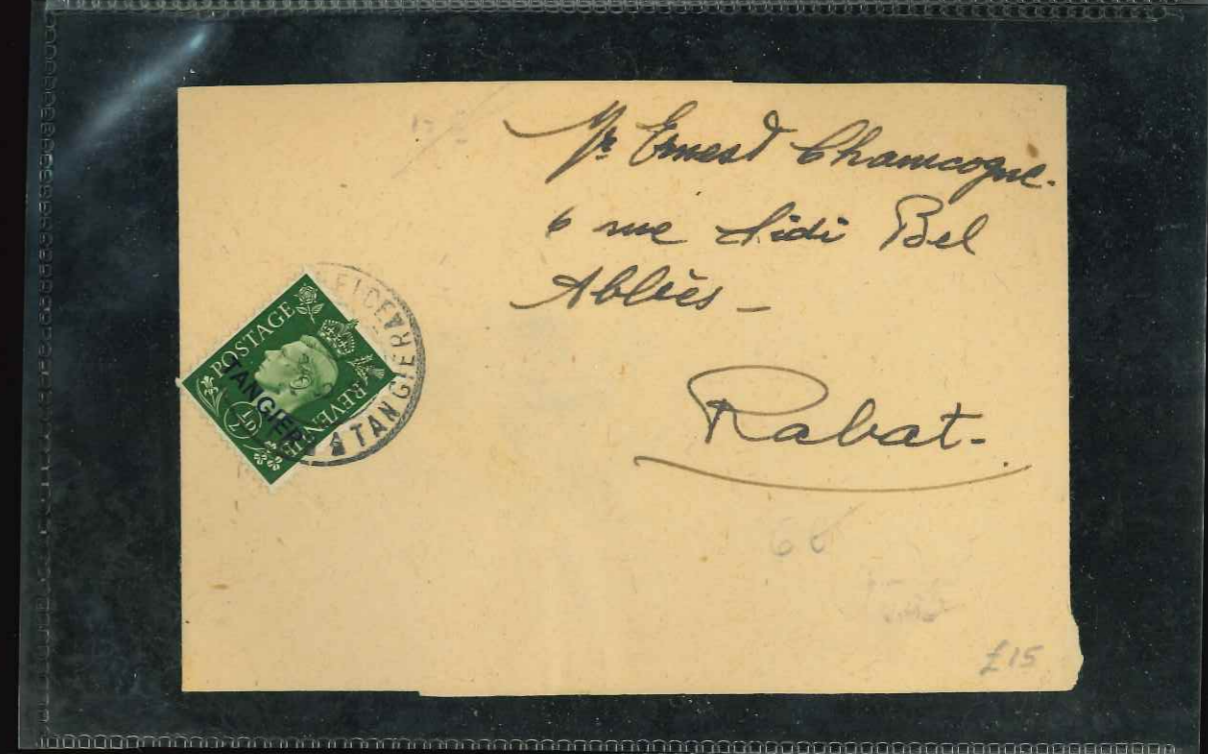 Mr Ernest Chamcogne.
6 rue Sidi Bel
Abbès -
Rabat.
POSTAGE
REVENUE
TANGIER
½D
TANGIER
£15
60